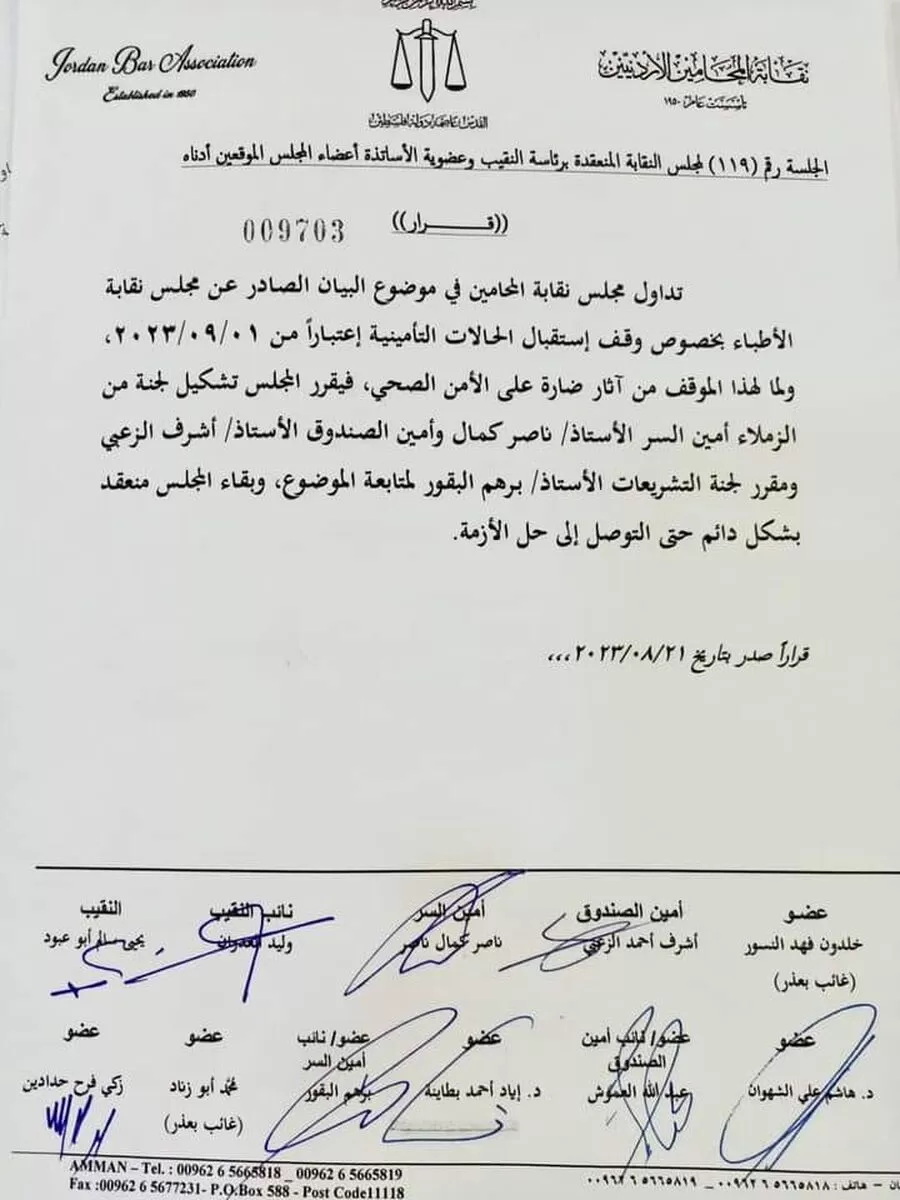 Jordan Bar Association
Established in 1950
نقابة المحامين الأردنيين
تأسست عام ١٩٥٠
القدس عاصمة دولة فلسطين
الجلسة رقم (١١٩) لمجلس النقابة المنعقدة برئاسة النقيب وعضوية الأساتذة أعضاء المجلس الموقعين أدناه
((قـــــرار))
009703
تداول مجلس نقابة المحامين في موضوع البيان الصادر عن مجلس نقابة
الأطباء بخصوص وقف إستقبال الحالات التأمينية إعتباراً من ٢٠٢٣/٠٩/٠١،
ولما لهذا الموقف من آثار ضارة على الأمن الصحي، فيقرر المجلس تشكيل لجنة من
الزملاء أمين السر الأستاذ/ ناصر كمال وأمين الصندوق الأستاذ/ أشرف الزعبي
ومقرر لجنة التشريعات الأستاذ/ برهم البقور لمتابعة الموضوع، وبقاء المجلس منعقد
بشكل دائم حتى التوصل إلى حل الأزمة.
قراراً صدر بتاريخ ٢٠٢٣/٠٨/٢١،،،
عضو أمين الصندوق أمين السر نائب النقيب النقيب
خلدون فهد النسور أشرف أحمد الزعبي ناصر كمال ناصر وليد العدوان يحيى سالم أبو عبود
(غائب بعذر)
عضو عضو/ نائب أمين عضو عضو/ نائب عضو عضو
الصندوق أمين السر
د. هاشم علي الشهوان عبد الله العموش د. إياد أحمد بطاينة برهم البقور محمد أبو زناد زكي فرح حدادين
(غائب بعذر)
AMMAN – Tel. : 00962 6 5665818 _ 00962 6 5665819
هاتف : ٥٦٦٥٨١٨ ٦ ٠٠٩٦٢ _ ٥٦٦٥٨١٩ ٦ ٠٠٩٦٢
Fax :00962 6 5677231- P.O.Box 588 - Post Code11118